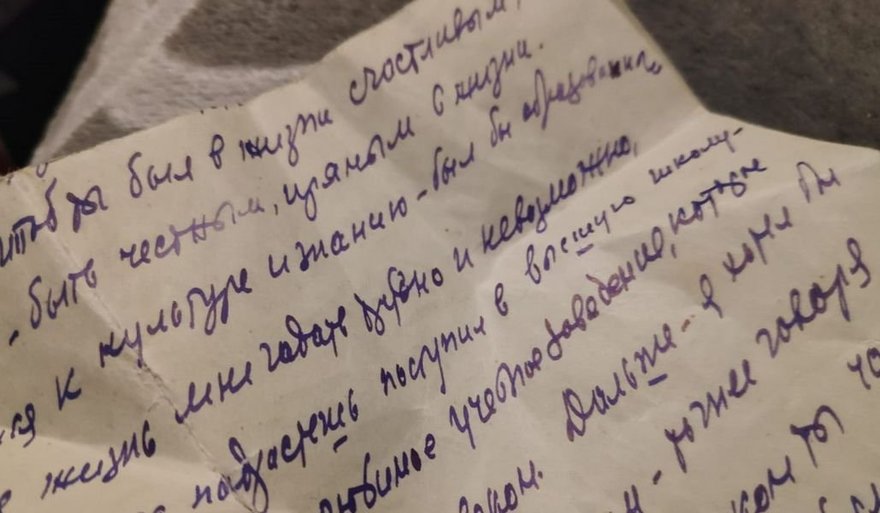 чтоб ты был в жизни счастливым,
- быть честным, прямым в жизни.
к культуре и знанию - был бы образованным
жизнь мне гадать трудно и невозможно,
подрастешь поступил в высшую школу -
любимое учебное заведение, которое
Дальше - я хотел бы
- тоже говоря
ты